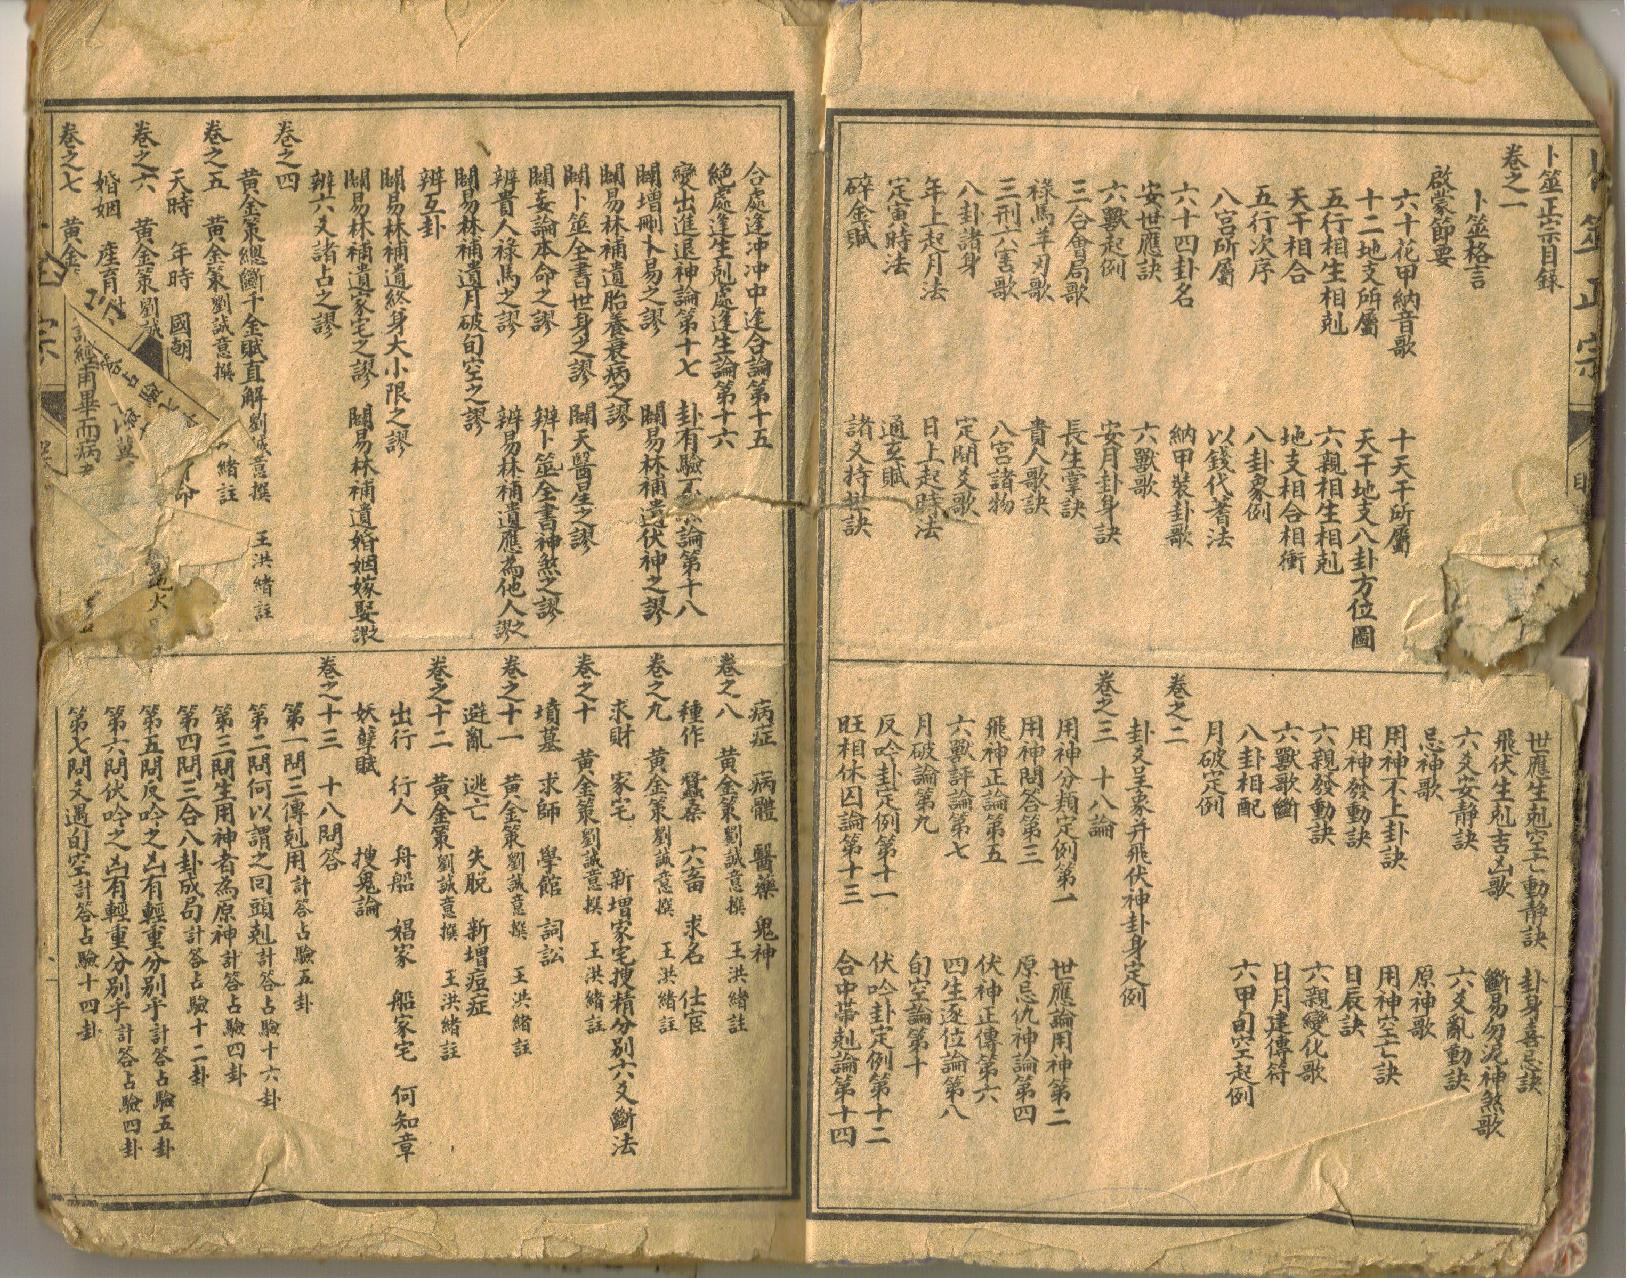 卜筮正宗目錄
卷之一
卜筮格言
啟蒙節要
六十花甲納音歌　十天干所屬
十二地支所屬　天干地支八卦方位圖
五行相生相剋　六親相生相剋
天干相合　地支相合相衝
五行次序　八卦象例
八宮所屬　以錢代蓍法
六十四卦名　納甲裝卦歌
安世應訣　六獸歌
六獸起例　安月卦身訣
三合會局歌　長生掌訣
祿馬羊刃歌　貴人歌訣
三刑六害歌　八宮諸物
八卦諸身　定間爻歌
年上起月法　日上起時法
定寅時法　通玄賦
碎金賦　諸爻持世訣
世應生剋空亡動靜訣　卦身喜忌訣
飛伏生剋吉凶歌　斷易勿泥神煞歌
六爻安靜訣　六爻亂動訣
忌神歌　原神歌
用神不上卦訣　用神空亡訣
用神發動訣　日辰訣
六親發動訣　六親變化歌
六獸歌斷　日月建傳符
八卦相配　六甲旬空起例
月破定例
卷之二
卦爻呈象并飛伏神卦身定例
卷之三　十八論
用神分類定例第一　世應論用神第二
用神問答第三　原忌仇神論第四
飛神正論第五　伏神正傳第六
六獸評論第七　四生逐位論第八
月破論第九　旬空論第十
反吟卦定例第十一　伏吟卦定例第十二
旺相休囚論第十三　合中帶剋論第十四
合處逢冲冲中逢合論第十五
絕處逢生剋處逢生論第十六
變出進退神論第十七　卦有驗不驗論第十八
闢增刪卜易之謬　闢易林補遺伏神之謬
闢易林補遺胎養衰病之謬
闢卜筮全書世身之謬　闢天醫星之謬
闢妄論本命之謬　辨卜筮全書神煞之謬
辨貴人祿馬之謬　辨易林補遺應為他人之謬
闢易林補遺月破旬空之謬
辨互卦
闢易林補遺終身大小限之謬
闢易林補遺家宅之謬　闢易林補遺婚姻嫁娶謬
辨六爻諸占之謬
卷之四
黃金策總斷千金賦直解　劉誠意撰　王洪緒註
卷之五　黃金策　劉誠意撰　緒註
天時　年時　國朝　命
卷之六　黃金策　劉誠
婚姻　產育
卷之七　黃金
病症　病體　醫藥　鬼神
卷之八　黃金策　劉誠意撰　王洪緒註
種作　蠶桑　六畜　求名　仕宦
卷之九　黃金策　劉誠意撰　王洪緒註
求財　家宅　新增家宅搜精分別六爻斷法
卷之十　黃金策　劉誠意撰　王洪緒註
墳墓　求師　學館　詞訟
卷之十一　黃金策　劉誠意撰　王洪緒註
避亂　逃亡　失脫　新增痘症
卷之十二　黃金策　劉誠意撰　王洪緒註
出行　行人　舟船　娼家　船家宅　何知章
妖孽賦　搜鬼論
卷之十三　十八問答
第一問三傳剋用　計答占驗五卦
第二問何以謂之回頭剋　計答占驗十六卦
第三問生用神者為原神　計答占驗四卦
第四問三合八卦成局　計答占驗十二卦
第五問反吟之凶有輕重分別乎　計答占驗五卦
第六問伏吟之凶有輕重分別乎　計答占驗四卦
第七問爻遇旬空　計答占驗十四卦